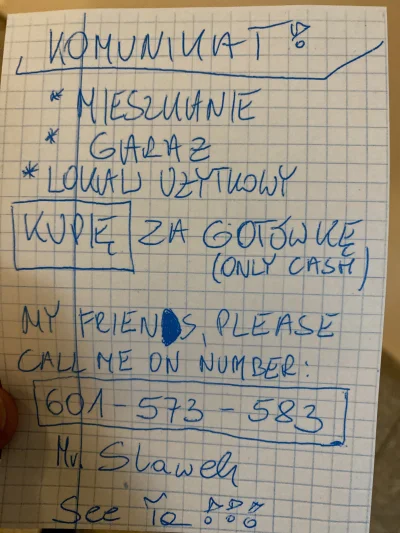 KOMUNIKAT!
* MIESZKANIE
* GARAZ
* LOKAL UZYTKOWY
KUPIĘ ZA GOTÓWKĘ
(ONLY CASH)
MY FRIENDS, PLEASE
CALL ME ON NUMBER:
601-573-583
Mr. Slawek
See To !!!